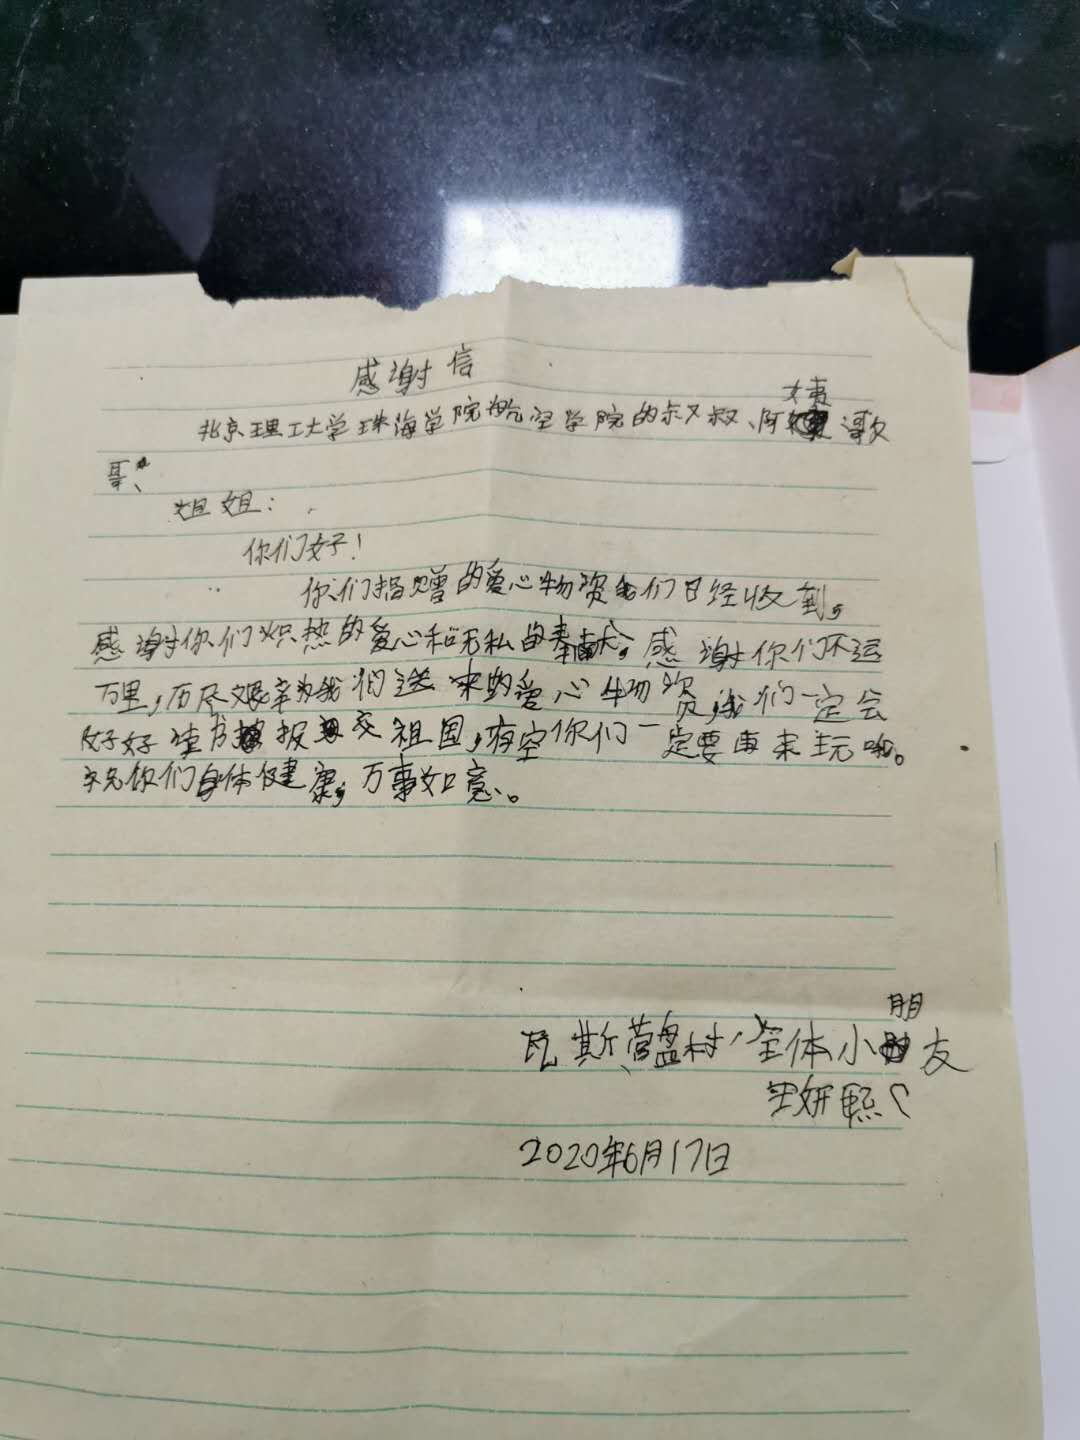 感谢信
北京理工大学珠海学院航空学院的叔叔、阿姨、歌
哥、
姐姐：
你们好！
你们捐赠的爱心物资我们已经收到，
感谢你们炽热的爱心和无私的奉献，感谢你们不远
万里，历尽艰辛为我们送来的爱心物资，我们一定会
好好读书报效祖国，有空你们一定要再来玩呦。
祝你们身体健康，万事如意。
瓦斯营盘村全体小朋友
王妍熙
2020年6月17日